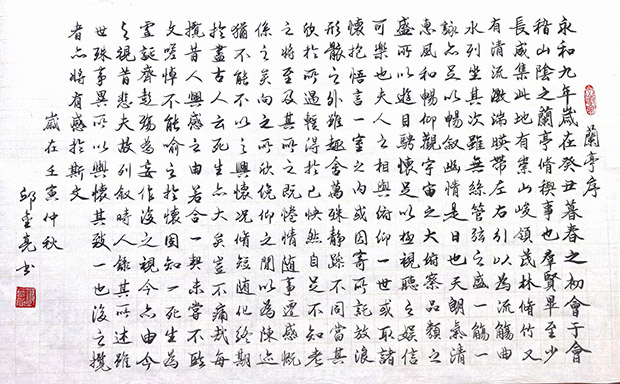 蘭亭序
永和九年歲在癸丑暮春之初會于會
稽山陰之蘭亭脩稧事也羣賢畢至少
長咸集此地有崇山峻領茂林脩竹又
有清流激湍暎帶左右引以為流觴曲
水列坐其次雖無絲管弦之盛一觴一
詠亦足以暢叙幽情是日也天朗氣清
惠風和暢仰觀宇宙之大俯察品類之
盛所以遊目騁懷足以極視聽之娛信
可樂也夫人之相與俯仰一世或取諸
懷抱悟言一室之內或因寄所託放浪
形骸之外雖趣舍萬殊静躁不同當其
欣於所遇暫得於己快然自足不知老
之將至及其所之既惓情随事遷感慨
係之矣向之所欣俛仰之間以為陳迹
猶不能不以之興懷況脩短随化終期
於盡古人云死生亦大矣豈不痛哉每
攬昔人興感之由若合一契未嘗不臨
文嗟悼不能喻之於懷固知一死生為
虛誕齊彭殤為妄作後之視今亦由今
之視昔悲夫故列叙時人錄其所述雖
世殊事異所以興懷其致一也後之攬
者亦將有感於斯文
歲在壬寅仲秋
邱金亮书